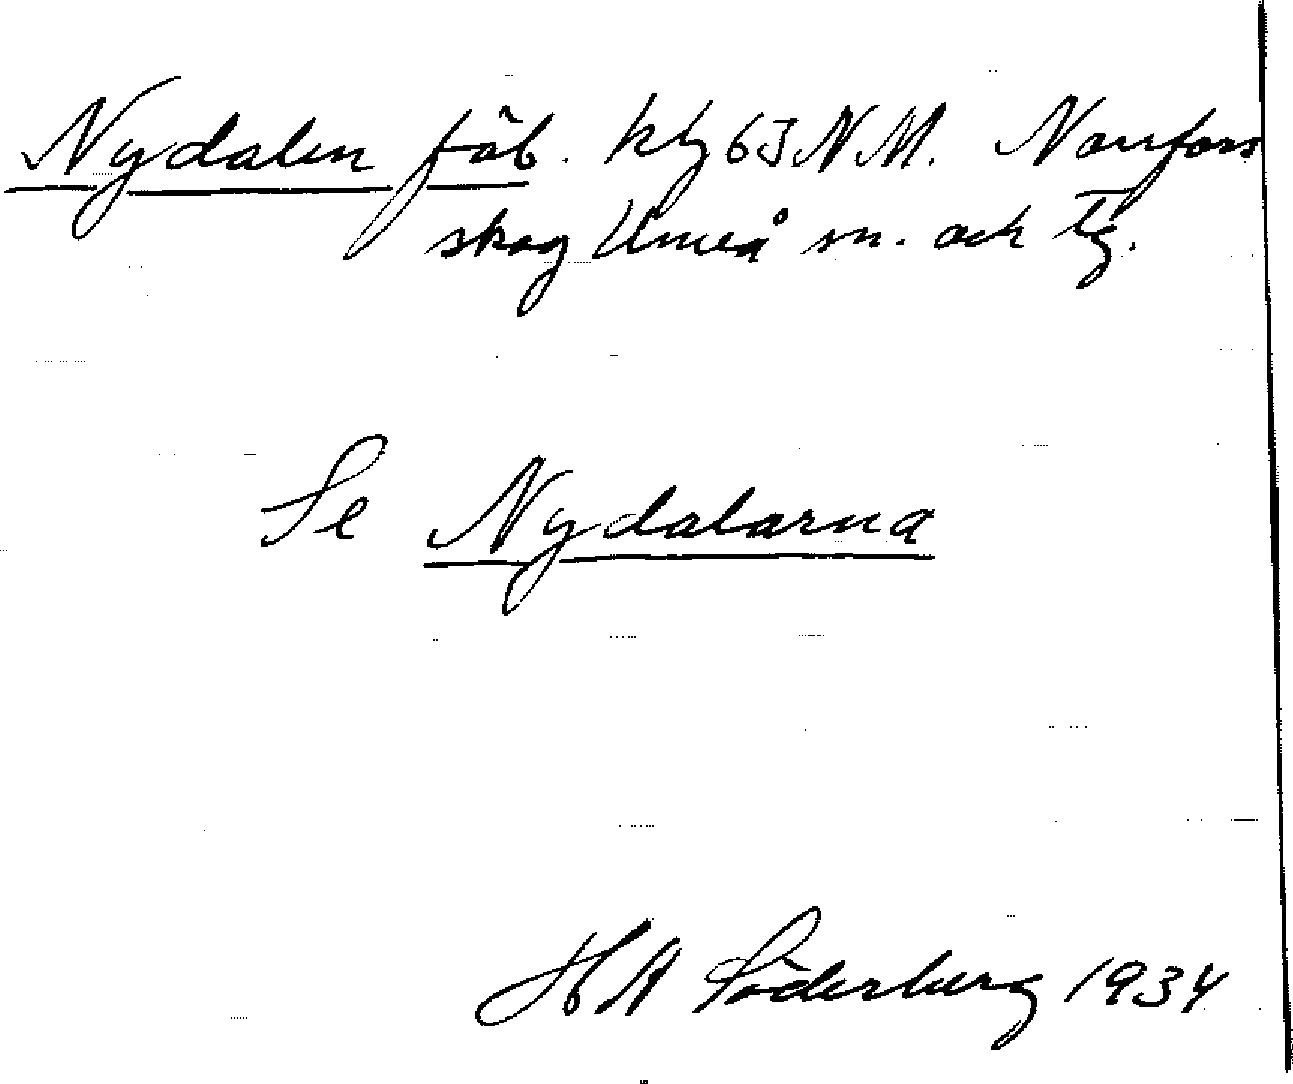 Nydalen fäb. kbg 63 N.M. Norrfors
skog Umeå sn. och tg.
Se Nydalarna
H A Söderberg 1934